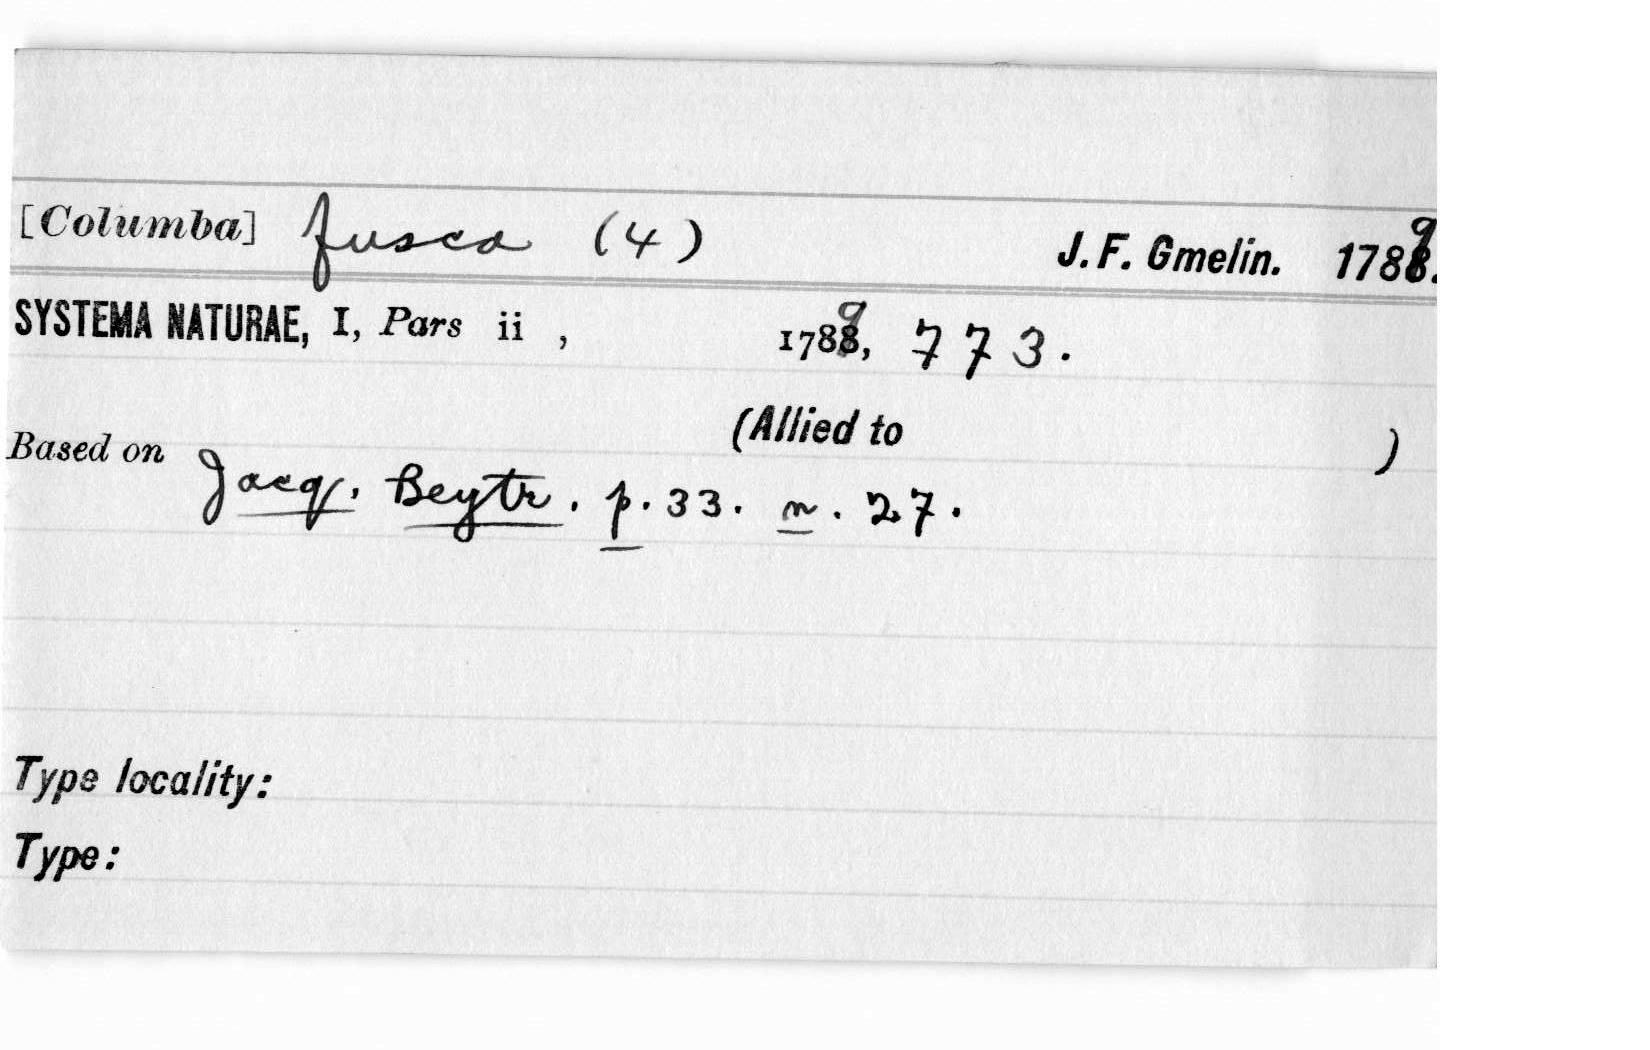 [Columba] fusca (4) J. F. Gmelin. 1789.
SYSTEMA NATURAE, I, Pars ii , 1789, 773.
(Allied to )
Based on Jacq. Beytr. p. 33. n. 27.
Type locality:
Type: